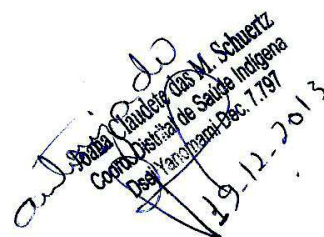 autorizado
Joana Claudete das M. Schuertz
Coord. Distrital de Saúde Indígena
Dsei Yanomami-Dec. 7.797
19.12.2013